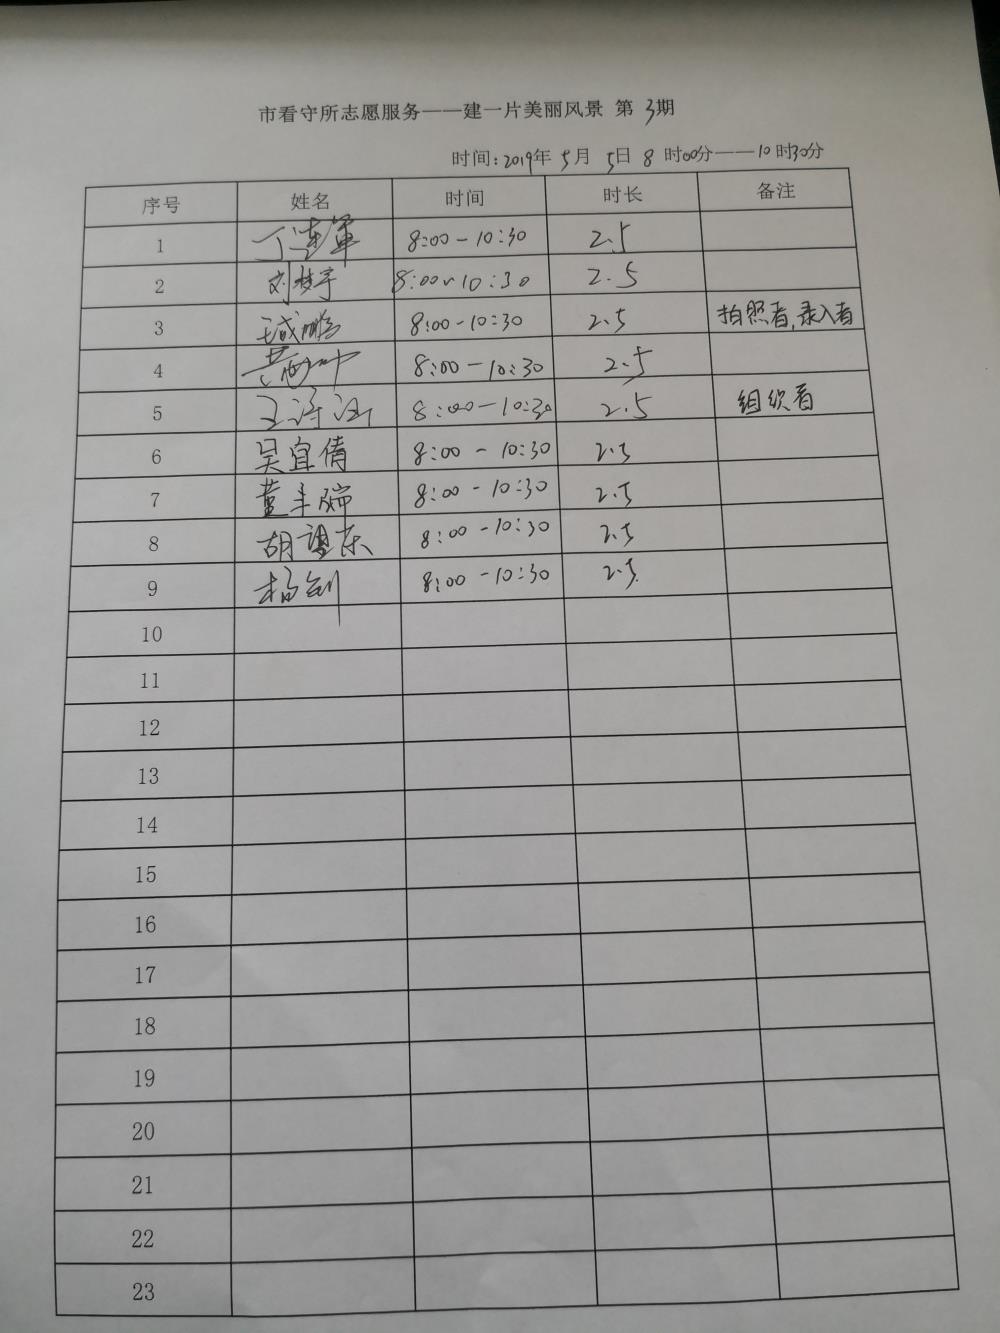 市看守所志愿服务——建一片美丽风景 第 3期
时间:2019年 5月 5日 8 时00分——10时30分
序号 姓名 时间 时长 备注
1 丁连军 8:00-10:30 2.5
2 刘梦宇 8:00~10:30 2.5
3 8:00-10:30 2.5 拍照者,录入者
4 8:00-10:30 2.5
5 8:00-10:30 2.5 组织者
6 吴宜倩 8:00-10:30 2.5
7 8:00-10:30 2.5
8 8:00-10:30 2.5
9 杨剑 8:00-10:30 2.5
10
11
12
13
14
15
16
17
18
19
20
21
22
23